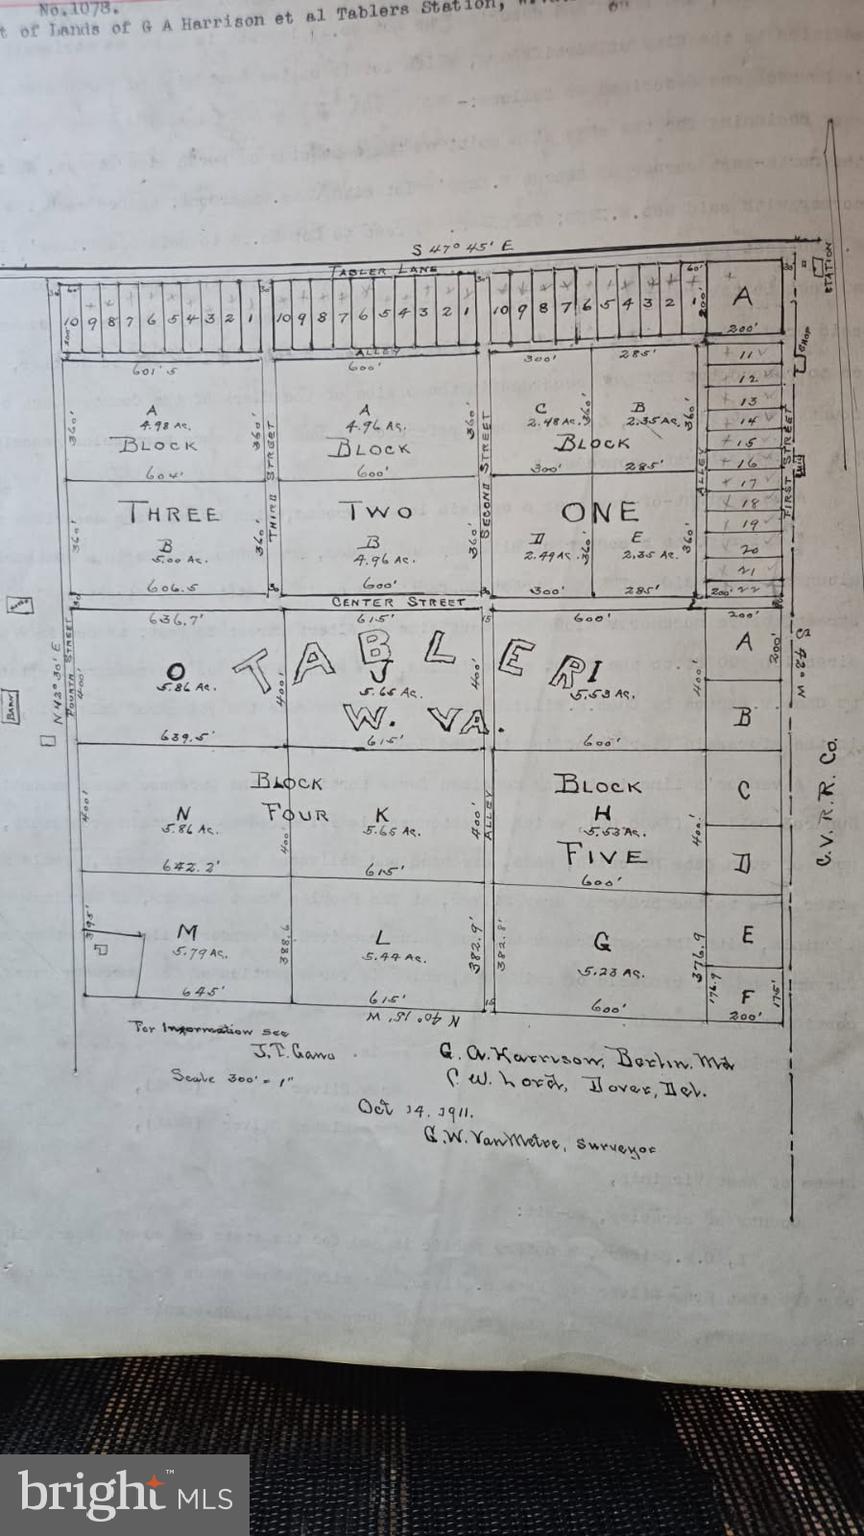 No.1078.
t of Lands of G A Harrison et al Tablers Station,
S 47° 45' E
TABLER LANE
STATION
10 9 8 7 6 5 4 3 2 1
10 9 8 7 6 5 4 3 2 1
10 9 8 7 6 5 4 3 2 1
60'
200'
A
200'
ALLEY
601.5
600'
300'
285'
11
12
13
14
15
16
17
18
19
20
21
200' 22
A
4.98 Ac.
BLOCK
604'
A
4.96 Ac.
BLOCK
600'
C
2.48 Ac.
B
2.35 Ac.
BLOCK
300'
285'
360'
360'
360'
360'
360'
THIRD STREET
SECOND STREET
ALLEY
FIRST STREET
THREE
TWO
ONE
B
5.00 Ac.
606.5
B
4.96 Ac.
600'
D
2.49 Ac.
E
2.35 Ac.
300'
285'
360'
360'
360'
360'
360'
CENTER STREET
636.7'
615'
600'
200'
N 43° 30' E
FOURTH STREET
BARN
TABLER
W. VA.
O
5.86 Ac.
J
5.65 Ac.
I
5.53 Ac.
400'
400'
400'
400'
639.5'
615'
600'
A
200'
B
C
D
E
F
S 42° W
C.V. R.R. Co.
BLOCK
FOUR
BLOCK
FIVE
N
5.86 Ac.
K
5.65 Ac.
H
5.53 Ac.
400'
400'
400'
400'
ALLEY
642.2'
615'
600'
M
5.79 Ac.
L
5.44 Ac.
G
5.23 Ac.
395'
388.6
382.9'
382.8'
376.9
176.9
175'
645'
615'
600'
200'
N 40° 15' W
For Information see
J.T. Gano
Scale 300' = 1"
G. A. Harrison, Berlin. Md
C. W. Lord, Dover, Del.
Oct 14. 1911.
G.W. VanMetre, Surveyor
bright™ MLS